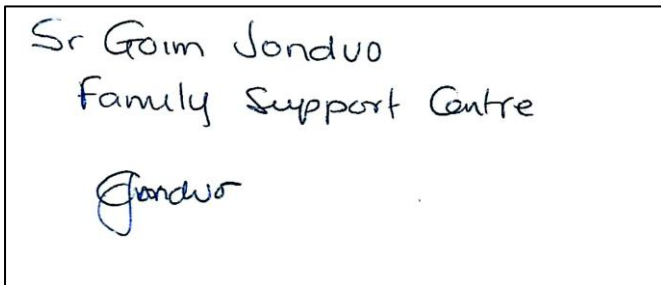 Sr Goim Jonduo
Family Support Centre
GJonduo